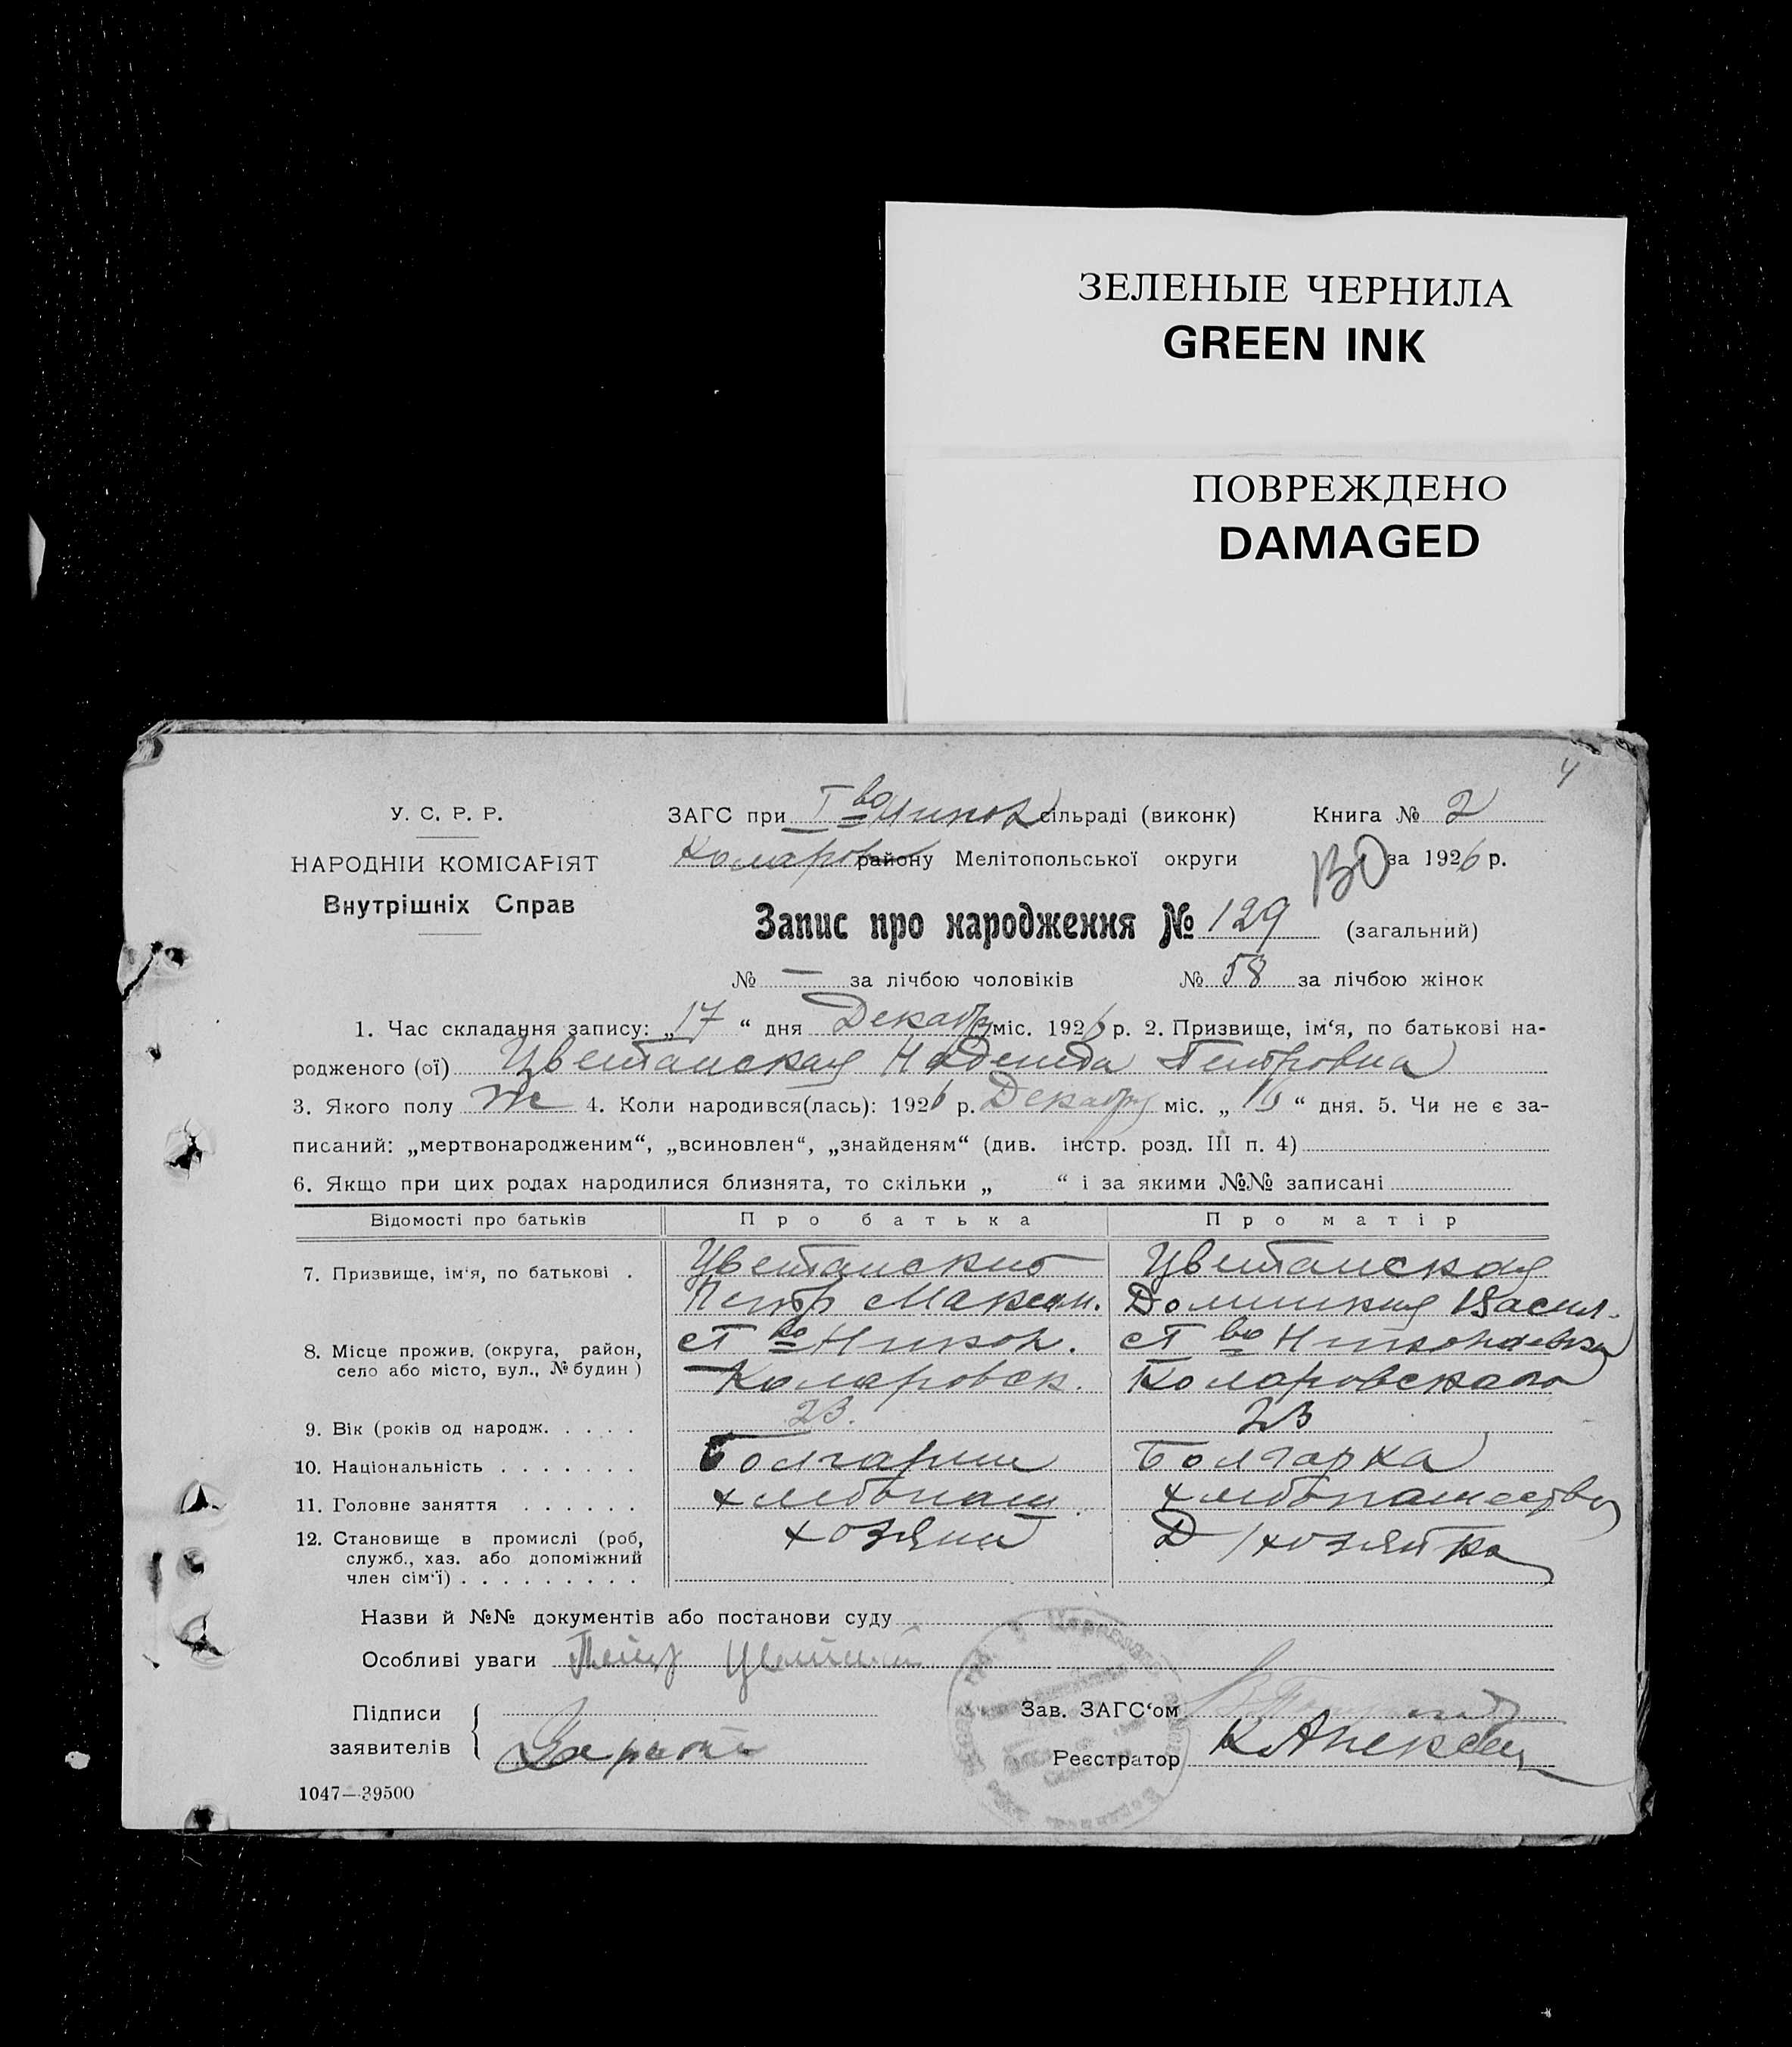 ЗЕЛЕНЫЕ ЧЕРНИЛА
GREEN INK
ПОВРЕЖДЕНО
DAMAGED
4
У. С. Р. Р.
НАРОДНІЙ КОМІСАРІЯТ
Внутрішніх Справ
ЗАГС при І во Никол сільраді (виконк)
Коларов району Мелітопольської округи
Книга № 2
за 1926 р.
Запис про народження № 129 (загальний)
№ — за лічбою чоловіків № 58 за лічбою жінок
1. Час складання запису: „17 “ дня Декабр міс. 1926 р. 2. Призвище, ім‘я, по батькові на-
родженого (ої) Цветанская Надежда Петровна
3. Якого полу ж 4. Коли народився(лась): 1926 р. Декабря міс. „ 16 “ дня. 5. Чи не є за-
писаний: „мертвонародженим“, „всиновлен“, „знайденям“ (див. інстр. розд. III п. 4)
6. Якщо при цих родах народилися близнята, то скільки „ “ і за якими №№ записані
Відомості про батьків Про батька Про матір
7. Призвище, ім‘я, по батькові . Цветанский Цветанская
Петр Максим. Доминкия Васил.
8. Місце прожив. (округа, район, Никол. Николаевка
село або місто, вул., № будин ) Коларовск. Коларовского
9. Вік (років од народж. . . . . 23. 23
10. Національність . . . . . . . Болгарин Болгарка
11. Головне заняття . . . . . . хлебопаш. хлебопашество
12. Становище в промислі (роб, хозяин Д/хозяйка
служб., хаз. або допоміжний
член сім‘ї) . . . . . . . . .
Назви й №№ документів або постанови суду
Особливі уваги Петр
Підписи
заявителів
Зав. ЗАГС‘ом
Реєстратор
1047—39500